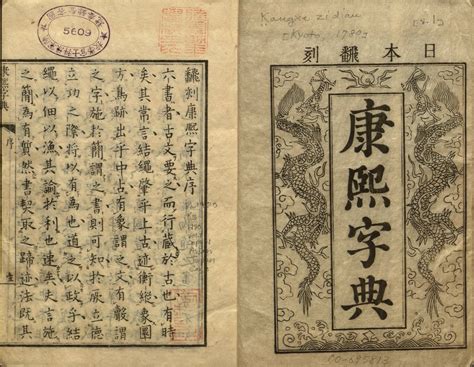 日本飜刻
康熙字典
Kangxi zidian
(Kyoto, 1780)
飜刻康熙字典序
六書者古文要之而行藏於古也有時
矣其常言結繩肇乎上古迹衝縱象圖
方馬跡出乎中古有像謂之文有謂
之字施於簡謂之書則可知於厥立德
立功之際將以有為也道之以政乎結
繩以佃以漁其諭於利也速矣史言施
之簡為有然書契取之歸迹法既其
康熙字典
序
5609